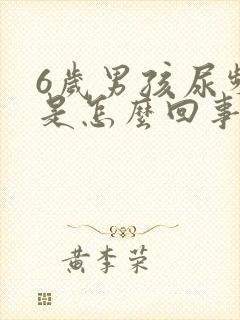 6歲男孩尿頻
是怎麼回事
黃李荣